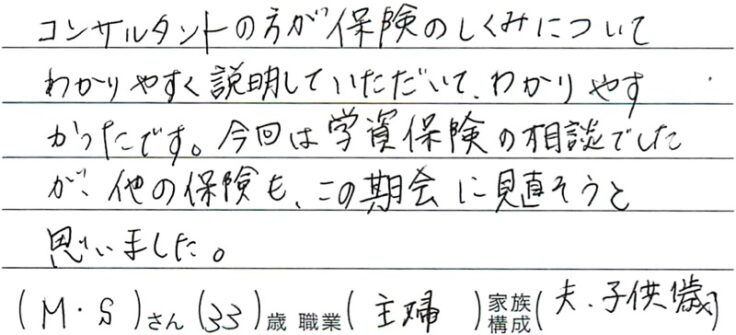 コンサルタントの方が保険のしくみについて
わかりやすく説明していただいて、わかりやす
かったです。今回は学資保険の相談でした
が、他の保険も、この期会に見直そうと
思いました。
(M・S)さん(33)歳 職業(主婦)家族構成(夫、子供1歳)